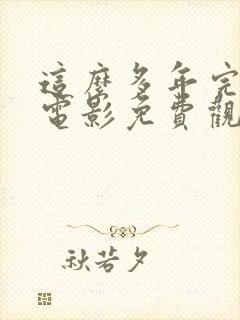 這麼多年完
電影免費觀
秋若夕